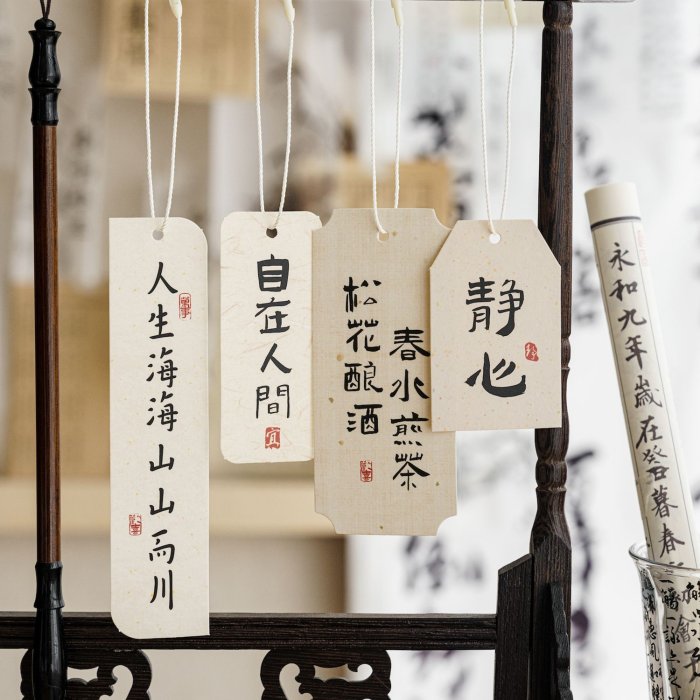 人生海海山山而川
自在人間
宜
松花酿酒
春水煎茶
静心
永和九年歲在癸暮春